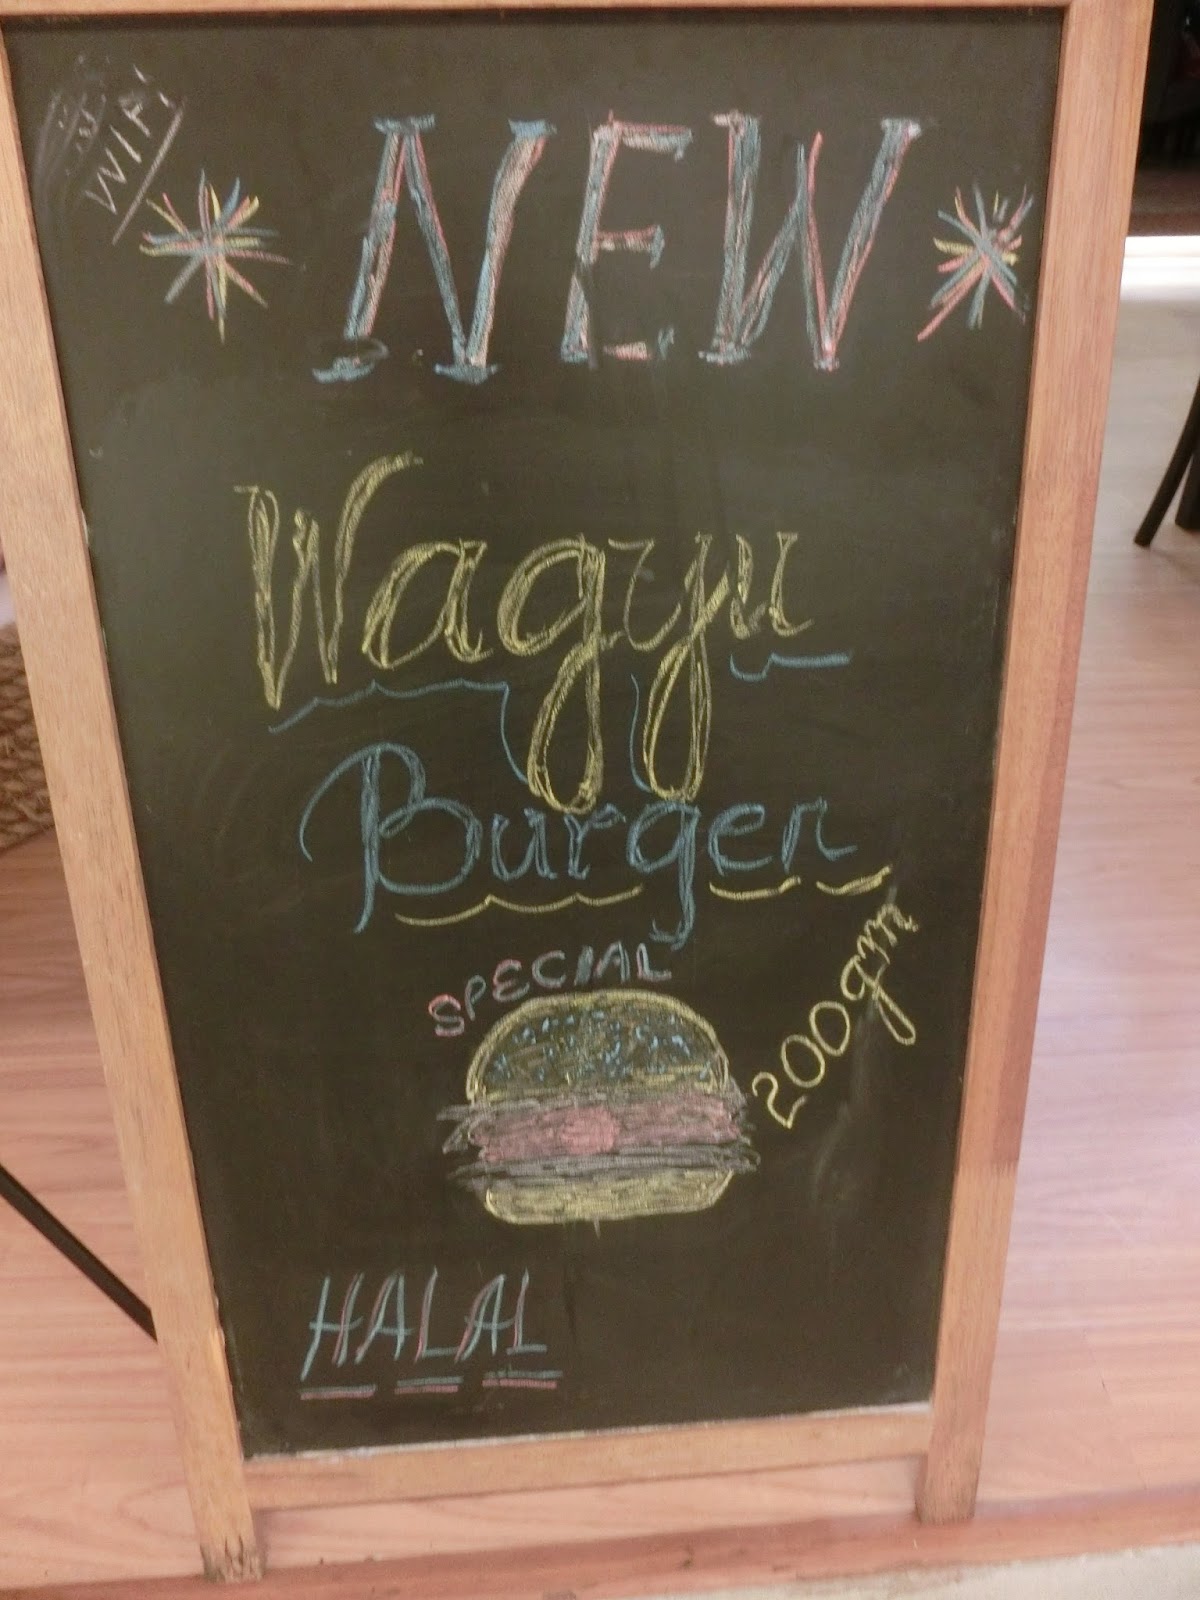 WIFI
NEW
Wagyu
Burger
SPECIAL
200gm
HALAL